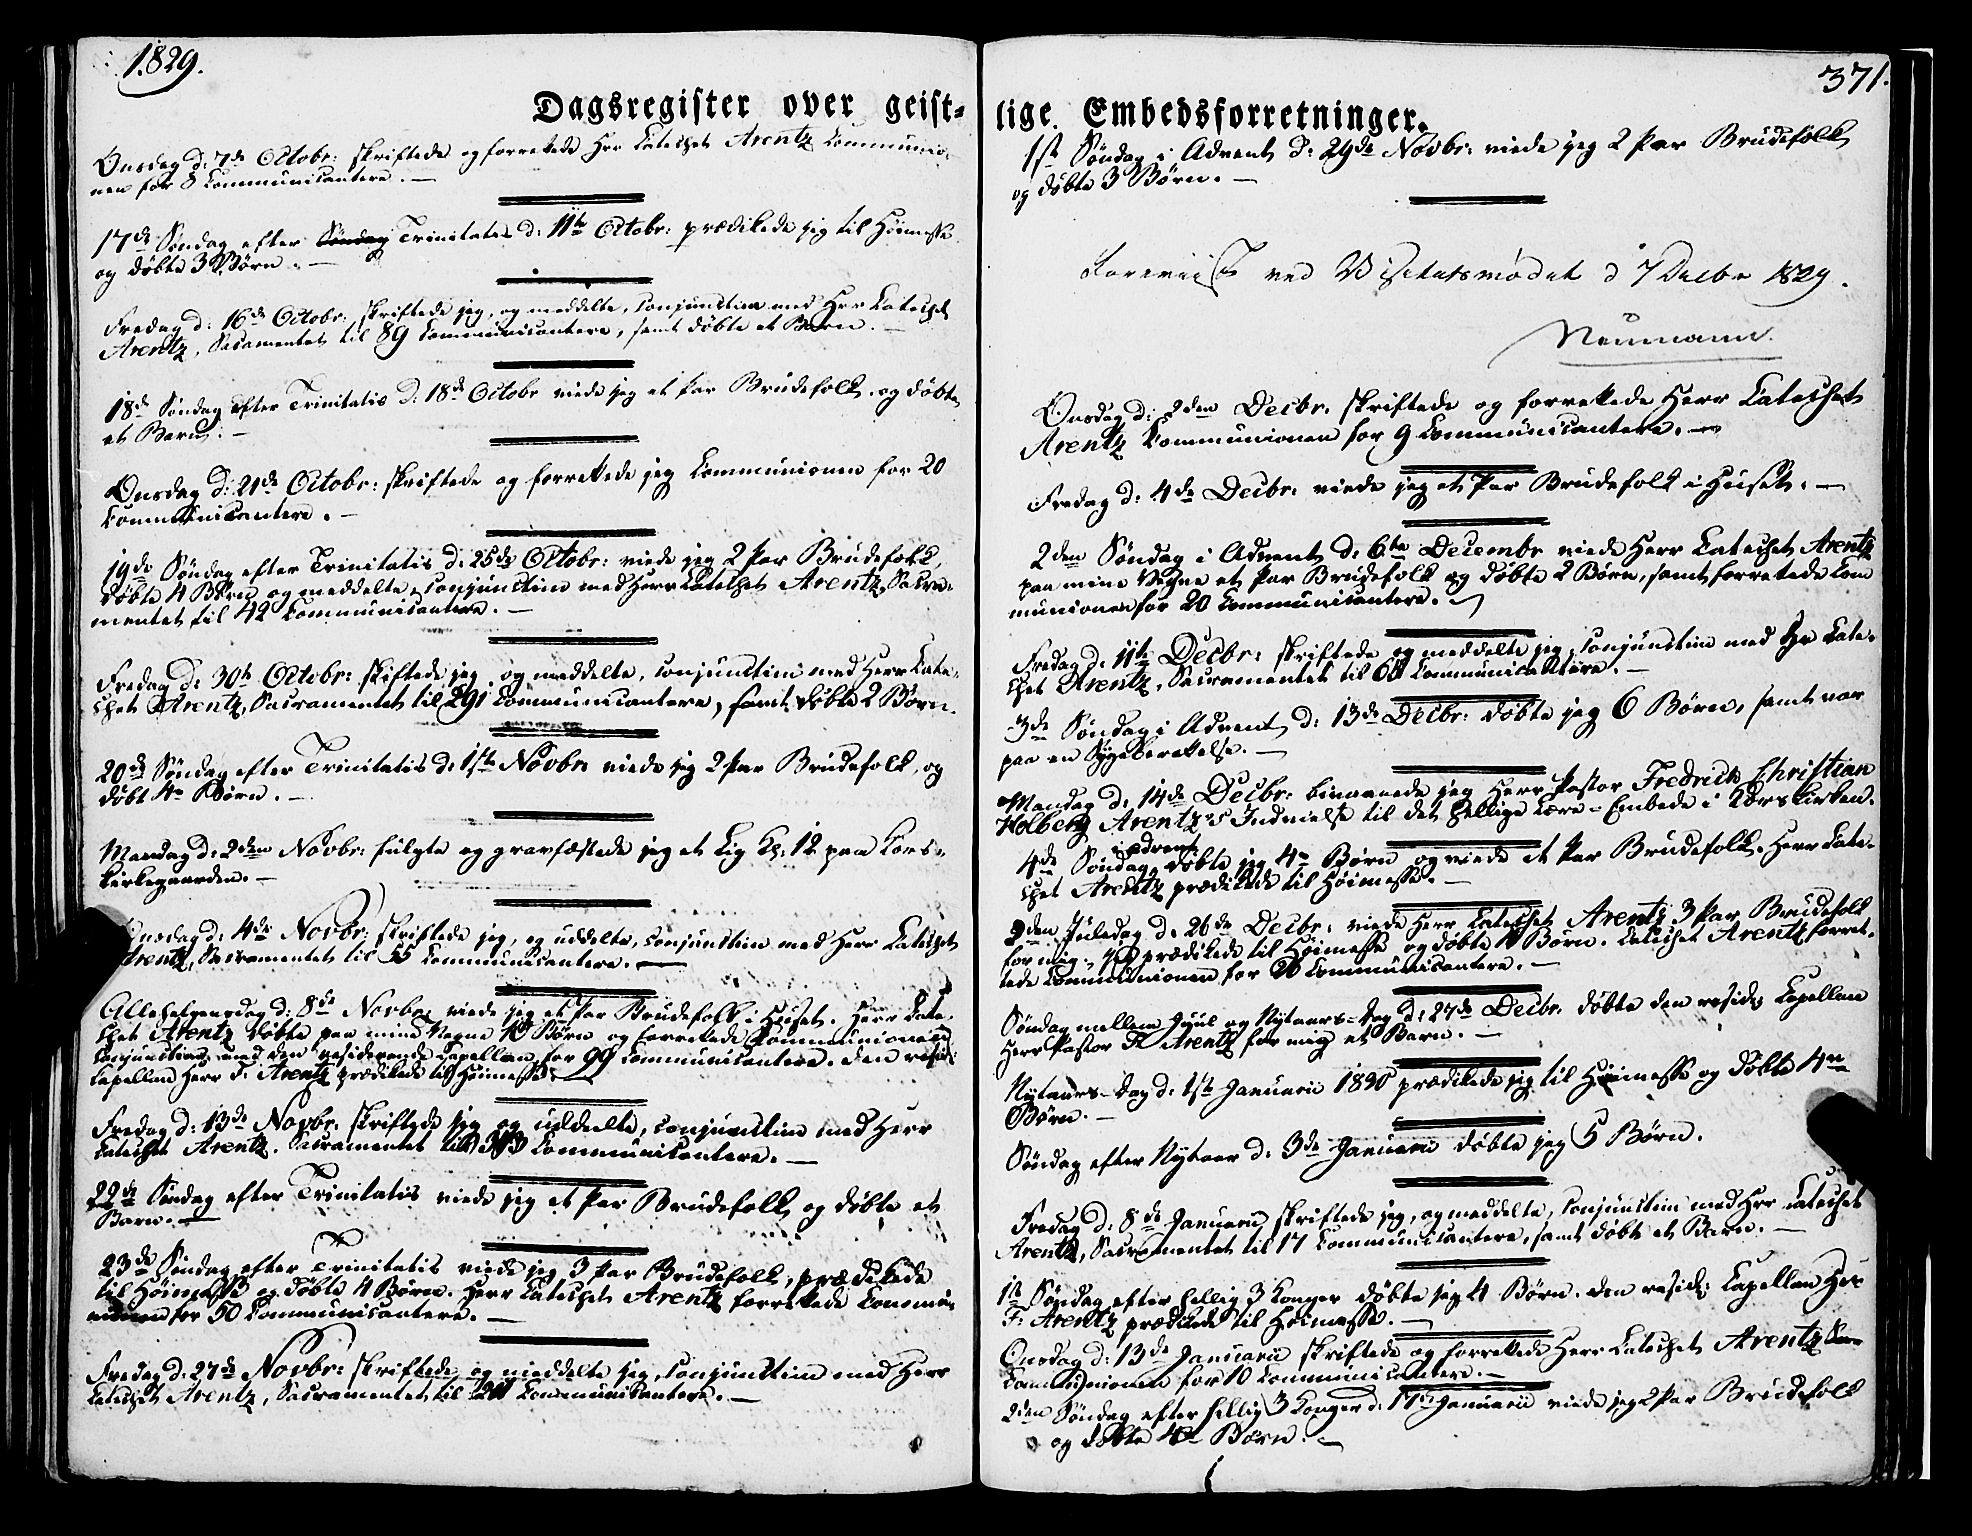 1829.
Dagsregister over geist-
Onsdag d: 7de Octobr: skriftede og forrettede Hrr Catechet Arentz Communio-
nen for 8 Communicantere. —
17de Søndag efter Søndag Trinitatis d: 11te Octobr: prædikede jeg til Høimesse
og døbte 3 Børn. —
Fredag d: 16de Octobr: skriftede jeg, og meddelte, conjunctim med Hrr Catechet
Arentz, Sacramentet til 89 Communicantere, samt døbte et Barn. —
18de Søndag efter Trinitatis d: 18de Octobr viede jeg et Par Brudefolk og døbte
et Barn. —
Onsdag d: 21de Octobr: skriftede og forrettede jeg Communionen for 20
Communicantere. —
19de Søndag efter Trinitatis d: 25de Octobr: viede jeg 2 Par Brudefolk,
døbte 4 Børn og meddelte, conjunctim med Herr Catechet Arentz, Sacra-
mentet til 42 Communicantere. —
Fredag d: 30te Octobr: skriftede jeg, og meddelte, conjunctim med Herr Cate-
chet Arentz, Sacramentet til 291 Communicantere, samt døbte 2 Børn.
20de Søndag efter Trinitatis d: 1ste Novbr viede jeg 2 Par Brudefolk, og
døbt 4re Børn. —
Mandag d: 2den Novbr: fulgte og gravfæstede jeg et Lig Kl: 12 paa Kors-
kirkegaarden. —
Onsdag d: 4de Novbr: skriftede jeg, og uddelte, conjunctim med Herr Catechet
Arentz, Sacramentet til 55 Communicantere. —
Allehelgensdag d: 8de Novbr: viede jeg et Par Brudefolk i Huset. Herr Cate-
chet Arentz døbte paa mine Vegne Børn og forrettede Communionen
conjunctim med den residerende Capellan for 99 Communicantere. Den resid:
Capellan Herr F. Arentz prædikede til Høimesse. —
Fredag d: 13de Novbr. skriftede jeg og uddelte, conjunctim med Herr
Catechet Arentz. Sacramentet til Communicantere. —
22de Søndag efter Trinitatis viede jeg et Par Brudefolk og døbte et
Barn. —
23de Søndag efter Trinitatis viede jeg 3 Par Brudefolk, prædikede
til Høimesse og døbte 4 Børn. Herr Catechet Arentz forrettede Commu-
nionen for 50 Communicantere. —
Fredag d: 27de Novbr: skriftede og meddelte jeg, conjunctim med Herr
Catechet Arentz, Sacramentet til Communicantere. —
371.
lige Embedsforretninger.
1ste Søndag i Advent d: 29de Novbr: viede jeg 2 Par Brudefolk
og døbte 3 Børn. —
Foreviist ved Visitatsmødet d 7 Decbr 1829.
Neumann.
Onsdag d: 2den Decbr. skriftede og forrettede Herr Catechet
Arentz Communionen for 9 Communicantere. —
Fredag d: 4de Decbr: viede jeg et Par Brudefolk i Huset. —
2den Søndag i Advent d: 6te Decembr viede Herr Catechet Arentz
paa mine Vegne et Par Brudefolk og døbte 2 Børn, samt forrettede Com
munionen for 20 Communicantere.
Fredag d: 11te Decbr: skriftede og meddelte jeg, conjunctim med Hr Cate-
chet Arentz, Sacramentet til Communicantere. —
3de Søndag i Advent d: 13de Decbr: døbte jeg 6 Børn, samt var
paa en Sygeberettelse. —
Mandag d: 14de Decbr: bivaanede jeg Herr Pastor Fredrich Christian
Holberg Arentz's Indvielse til det hellige Lære-Embede i Korskirken.
4de Søndag i Advent døbte jeg 4re Børn og viede et Par Brudefolk. Herr Cate-
chet Arentz prædikede til Høimesse. —
2den Juledag d: 26de Decbr: viede Herr Catechet Arentz 3 Par Brudefolk
for mig. Jeg prædikede til Høimesse og døbte Børn. Catechet Arentz forret-
tede Communionen for 26 Communicantere. —
Søndag mellem Juul og Nytaars-Dag d: 27de Decbr. døbte den resid: Capellan
Herr Pastor F. Arentz for mig et Barn. —
Nytaars-Dag d: 1ste Januarii 1830 prædikede jeg til Høimesse og døbte 4re
Børn. —
Søndag efter Nytaar d: 3de Januarii døbte jeg 5 Børn.
Fredag d: 8de Januarii skriftede jeg, og meddelte, conjunctim med Hrr Catechet
Arentz, Sacramentet til 17 Communicantere, samt døbt et Barn. —
1ste Søndag efter hellig 3 Konger døbte jeg 4 Børn. Den resid: Capellan Herr
F. Arentz prædikede til Høimesse. —
Onsdag d: 13de Januarii skriftede og forrettede Herr Catechet Arentz
Communionen for 10 Communicantere. —
2den Søndag efter hellig 3 Konger d: 17de Januarii viede jeg 2 Par Brudefolk
og døbte 4re Børn. —